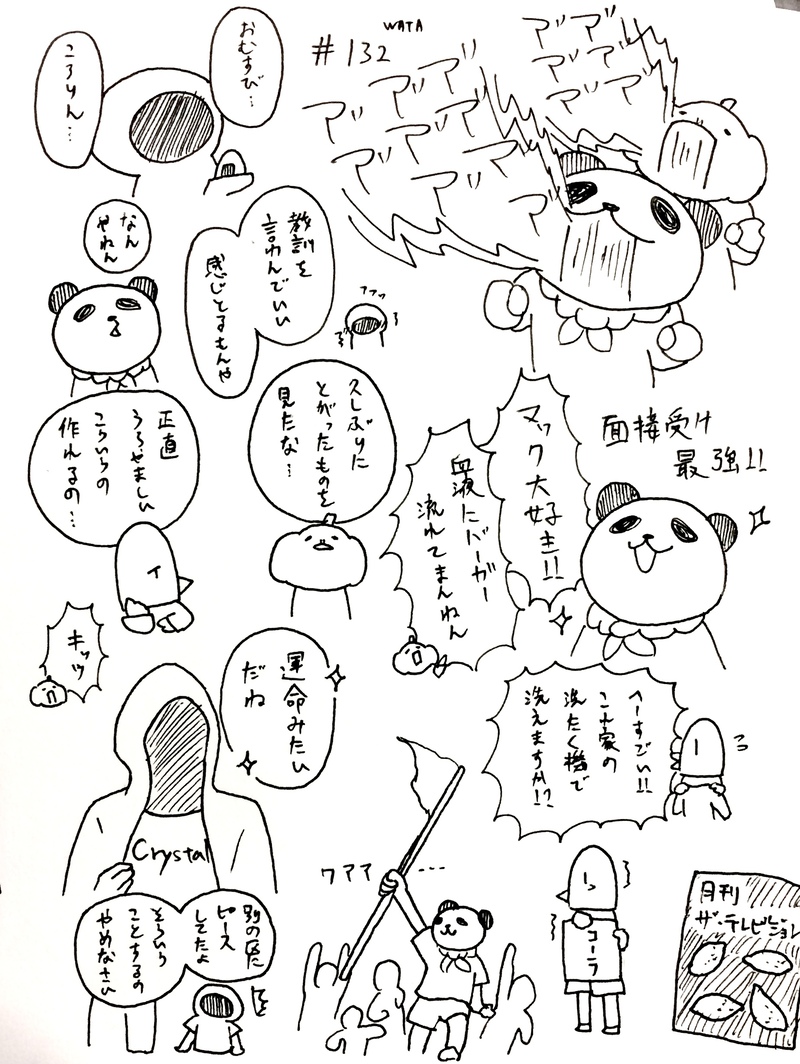 WATA
#132
アアア
アアア
アアア
アアア
アアア
アアア
アア
ア
おむすび…
ころりん…
なん
やねん
教訓を
言わんでいい
感じとるもんや
ファッ
面接受け
最強!!
マック大好き!!
血液にバーガー
流れてまんねん
久しぶりに
とがったものを
見たな…
正直
うらやましい
こういうの
作れるの…
キッツ
へーすごい!!
これ家の
洗たく機で
洗えますか!?
運命みたい
だね
Crystal
ワアア…
コーラ
月刊
ザ・テレビジョン
別の区に
ピース
してたよ
そういう
ことするの
やめなさい